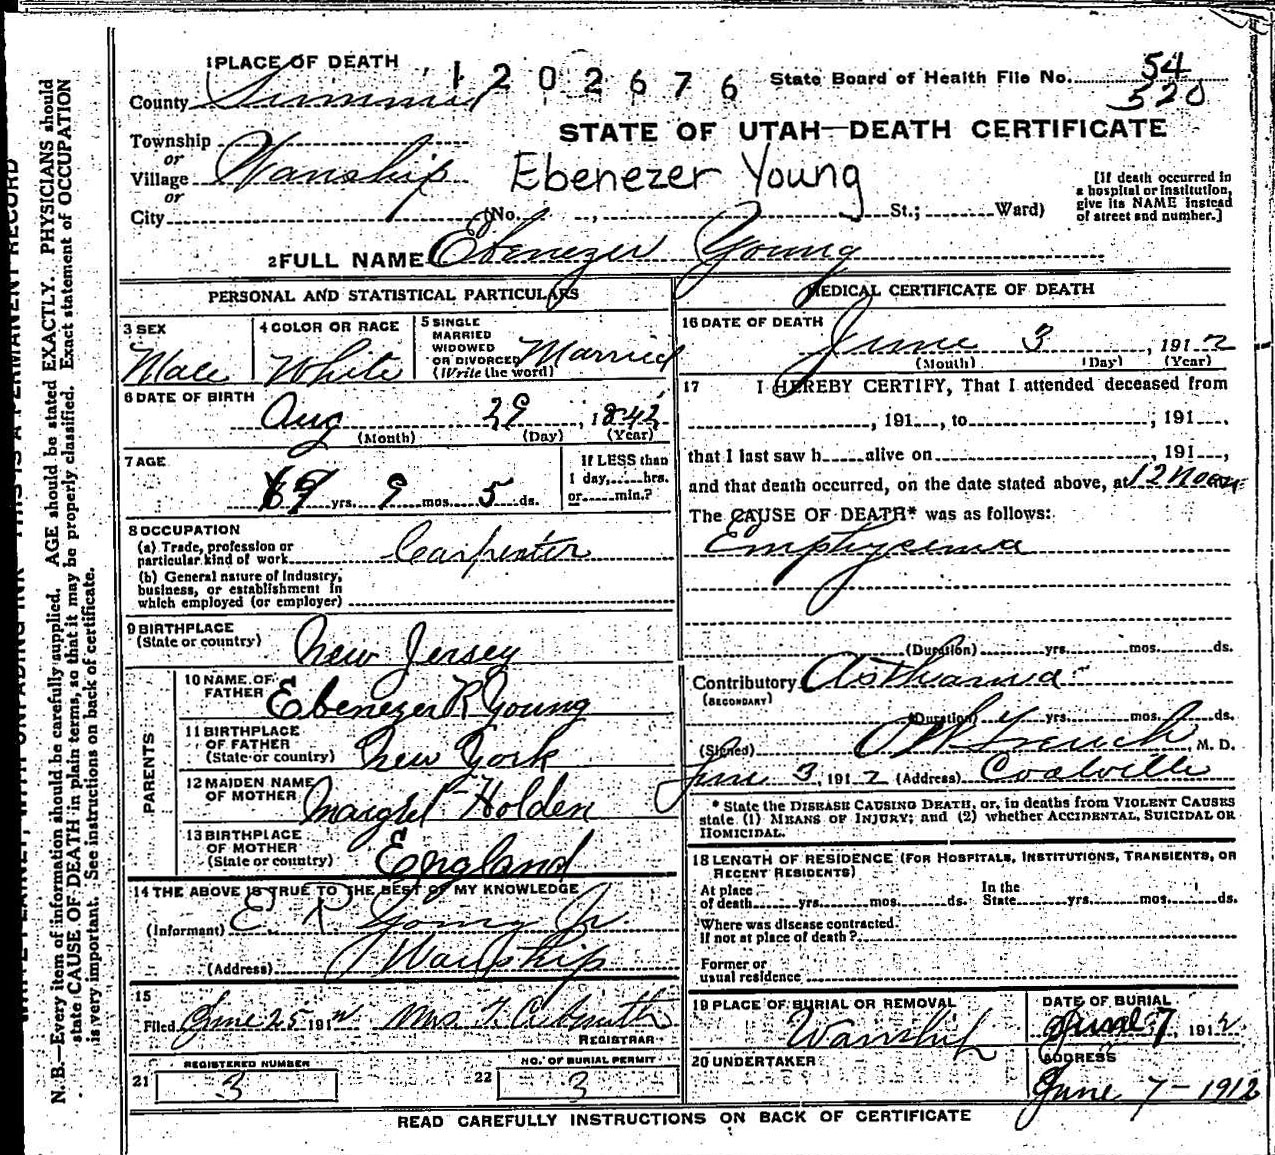 1 PLACE OF DEATH
1 2 0 2 6 7 6
State Board of Health File No. 54
520
County Summit
STATE OF UTAH—DEATH CERTIFICATE
Township
or
Village Wanship
Ebenezer Young
or
City (No. , St.; Ward)
[If death occurred in
a hospital or institution,
give its NAME instead
of street and number.]
2 FULL NAME Ebenezer Young
PERSONAL AND STATISTICAL PARTICULARS
3 SEX
Male
4 COLOR OR RACE
White
5 SINGLE
MARRIED
WIDOWED
OR DIVORCED
(Write the word)
Married
6 DATE OF BIRTH
Aug 29, 1842
(Month) (Day) (Year)
7 AGE
69 yrs. 9 mos. 5 ds.
If LESS than
1 day, hrs.
or min.?
8 OCCUPATION
(a) Trade, profession or
particular kind of work Carpenter
(b) General nature of industry,
business, or establishment in
which employed (or employer)
9 BIRTHPLACE
(State or country) New Jersey
PARENTS
10 NAME OF
FATHER Ebenezer R Young
11 BIRTHPLACE
OF FATHER
(State or country) New York
12 MAIDEN NAME
OF MOTHER Margret Holden
13 BIRTHPLACE
OF MOTHER
(State or country) England
14 THE ABOVE IS TRUE TO THE BEST OF MY KNOWLEDGE
(Informant) E R Young Jr
(Address) Wanship
15
Filed June 25 1912 Mrs
REGISTRAR
REGISTERED NUMBER
21 3
NO. OF BURIAL PERMIT
22 3
MEDICAL CERTIFICATE OF DEATH
16 DATE OF DEATH
June 3, 1912
(Month) (Day) (Year)
17 I HEREBY CERTIFY, That I attended deceased from
, 191 , to ; 191 ,
that I last saw h alive on , 191 ,
and that death occurred, on the date stated above, at 12 Noon
The CAUSE OF DEATH* was as follows:
Emphycima
(Duration) yrs. mos. ds.
Contributory Asthama
(SECONDARY)
(Duration) yrs. mos. ds.
(Signed) , M. D.
June 3, 1912 (Address) Coalville
* State the DISEASE CAUSING DEATH, or, in deaths from VIOLENT CAUSES
state (1) MEANS OF INJURY; and (2) whether ACCIDENTAL, SUICIDAL OR
HOMICIDAL.
18 LENGTH OF RESIDENCE (FOR HOSPITALS, INSTITUTIONS, TRANSIENTS, OR
RECENT RESIDENTS)
At place
of death yrs. mos. ds.
In the
State yrs. mos. ds.
Where was disease contracted
if not at place of death?
Former or
usual residence
19 PLACE OF BURIAL OR REMOVAL
Wanship
DATE OF BURIAL
June 7 1912
20 UNDERTAKER
ADDRESS
June 7 - 1912
READ CAREFULLY INSTRUCTIONS ON BACK OF CERTIFICATE
N. B.—Every item of information should be carefully supplied. AGE should be stated EXACTLY. PHYSICIANS should
state CAUSE OF DEATH in plain terms, so that it may be properly classified. Exact statement of OCCUPATION
is very important. See instructions on back of certificate.